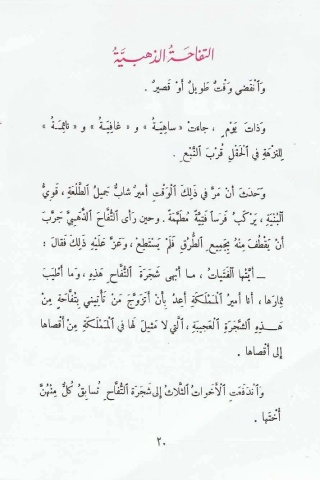 التفاحَةُ الذهبيَّةُ
وَٱنْقَضى وَقْتٌ طَويلٌ أوْ قَصيرٌ .
وَذاتَ يَوْمٍ ، جاءَتْ « ساهِيَةُ » و « غافِيَةُ » و « نائِمَةُ »
لِلنُزْهَةِ في الْحَقْلِ قُرْبَ النَّبْعِ .
وَحَدَثَ أنْ مَرَّ في ذلِكَ الْوَقْتِ أميرٌ شابٌّ جَميلُ الطَّلْعَةِ ، قَوِيُّ
الْبُنْيَةِ ، يَرْكَبُ فَرَساً فَتِيَّةً مُطَهَّمَةً . وحين رَأى التُّفّاحَ الذَّهَبِيَّ جَرَّبَ
أنْ يَقْطُفَ مِنْهُ بِجَميعِ الطُّرُقِ فَلَمْ يَسْتَطِعْ ، وَعَزَّ عَلَيْهِ ذلِكَ فَقالَ :
— أيَّتُها الْفَتَياتُ ، ما أبْهى شَجَرَةَ التُّفّاحِ هذِهِ ، وَما أطْيَبَ
ثِمارَها ، أنا أميرُ الْمَمْلَكَةِ أعِدُ بِأنْ أتَزَوَّجَ مَنْ تَأْتيني بِتُفّاحَةٍ مِنْ
هذِهِ الشَّجَرَةِ الْعَجيبَةِ ، الَّتي لا مَثيلَ لَها في الْمَمْلَكَةِ مِنْ أقْصاها
إلى أقْصاها .
وَٱنْدَفَعَتِ الْأخَواتُ الثَّلاثُ إلى شَجَرَةِ التُّفّاحِ تُسابِقُ كُلٌّ مِنْهُنَّ
أُخْتَها .
٢٠